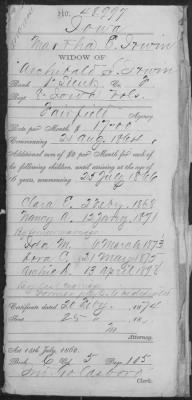 No. 48997
Iowa
Martha E. Irwin
WIDOW OF
Archibald S. Irwin
Rank 1" Lieut Co.
Regt 2 Iowa Vols.
Fairfield
Agency
Rate per Month $ 17.00
Commencing 21 Aug 1864
Additional sum of $2 per month for each of
the following children, until arriving at the age of
16 years, commencing 25 July 1866
Clara E. 3 Feby. 1868
Nancy A. 12 Jany. 1871
By former marriage
Iola M. 6 March 1873
Cora C. 21 May 1875
Archie 13 Apl 1878
Certificate dated 26 Feby. 1874
Sent 25
Attorney.
Act 14th July, 1862.
Book C Vol. 5 Page 185
Clerk.